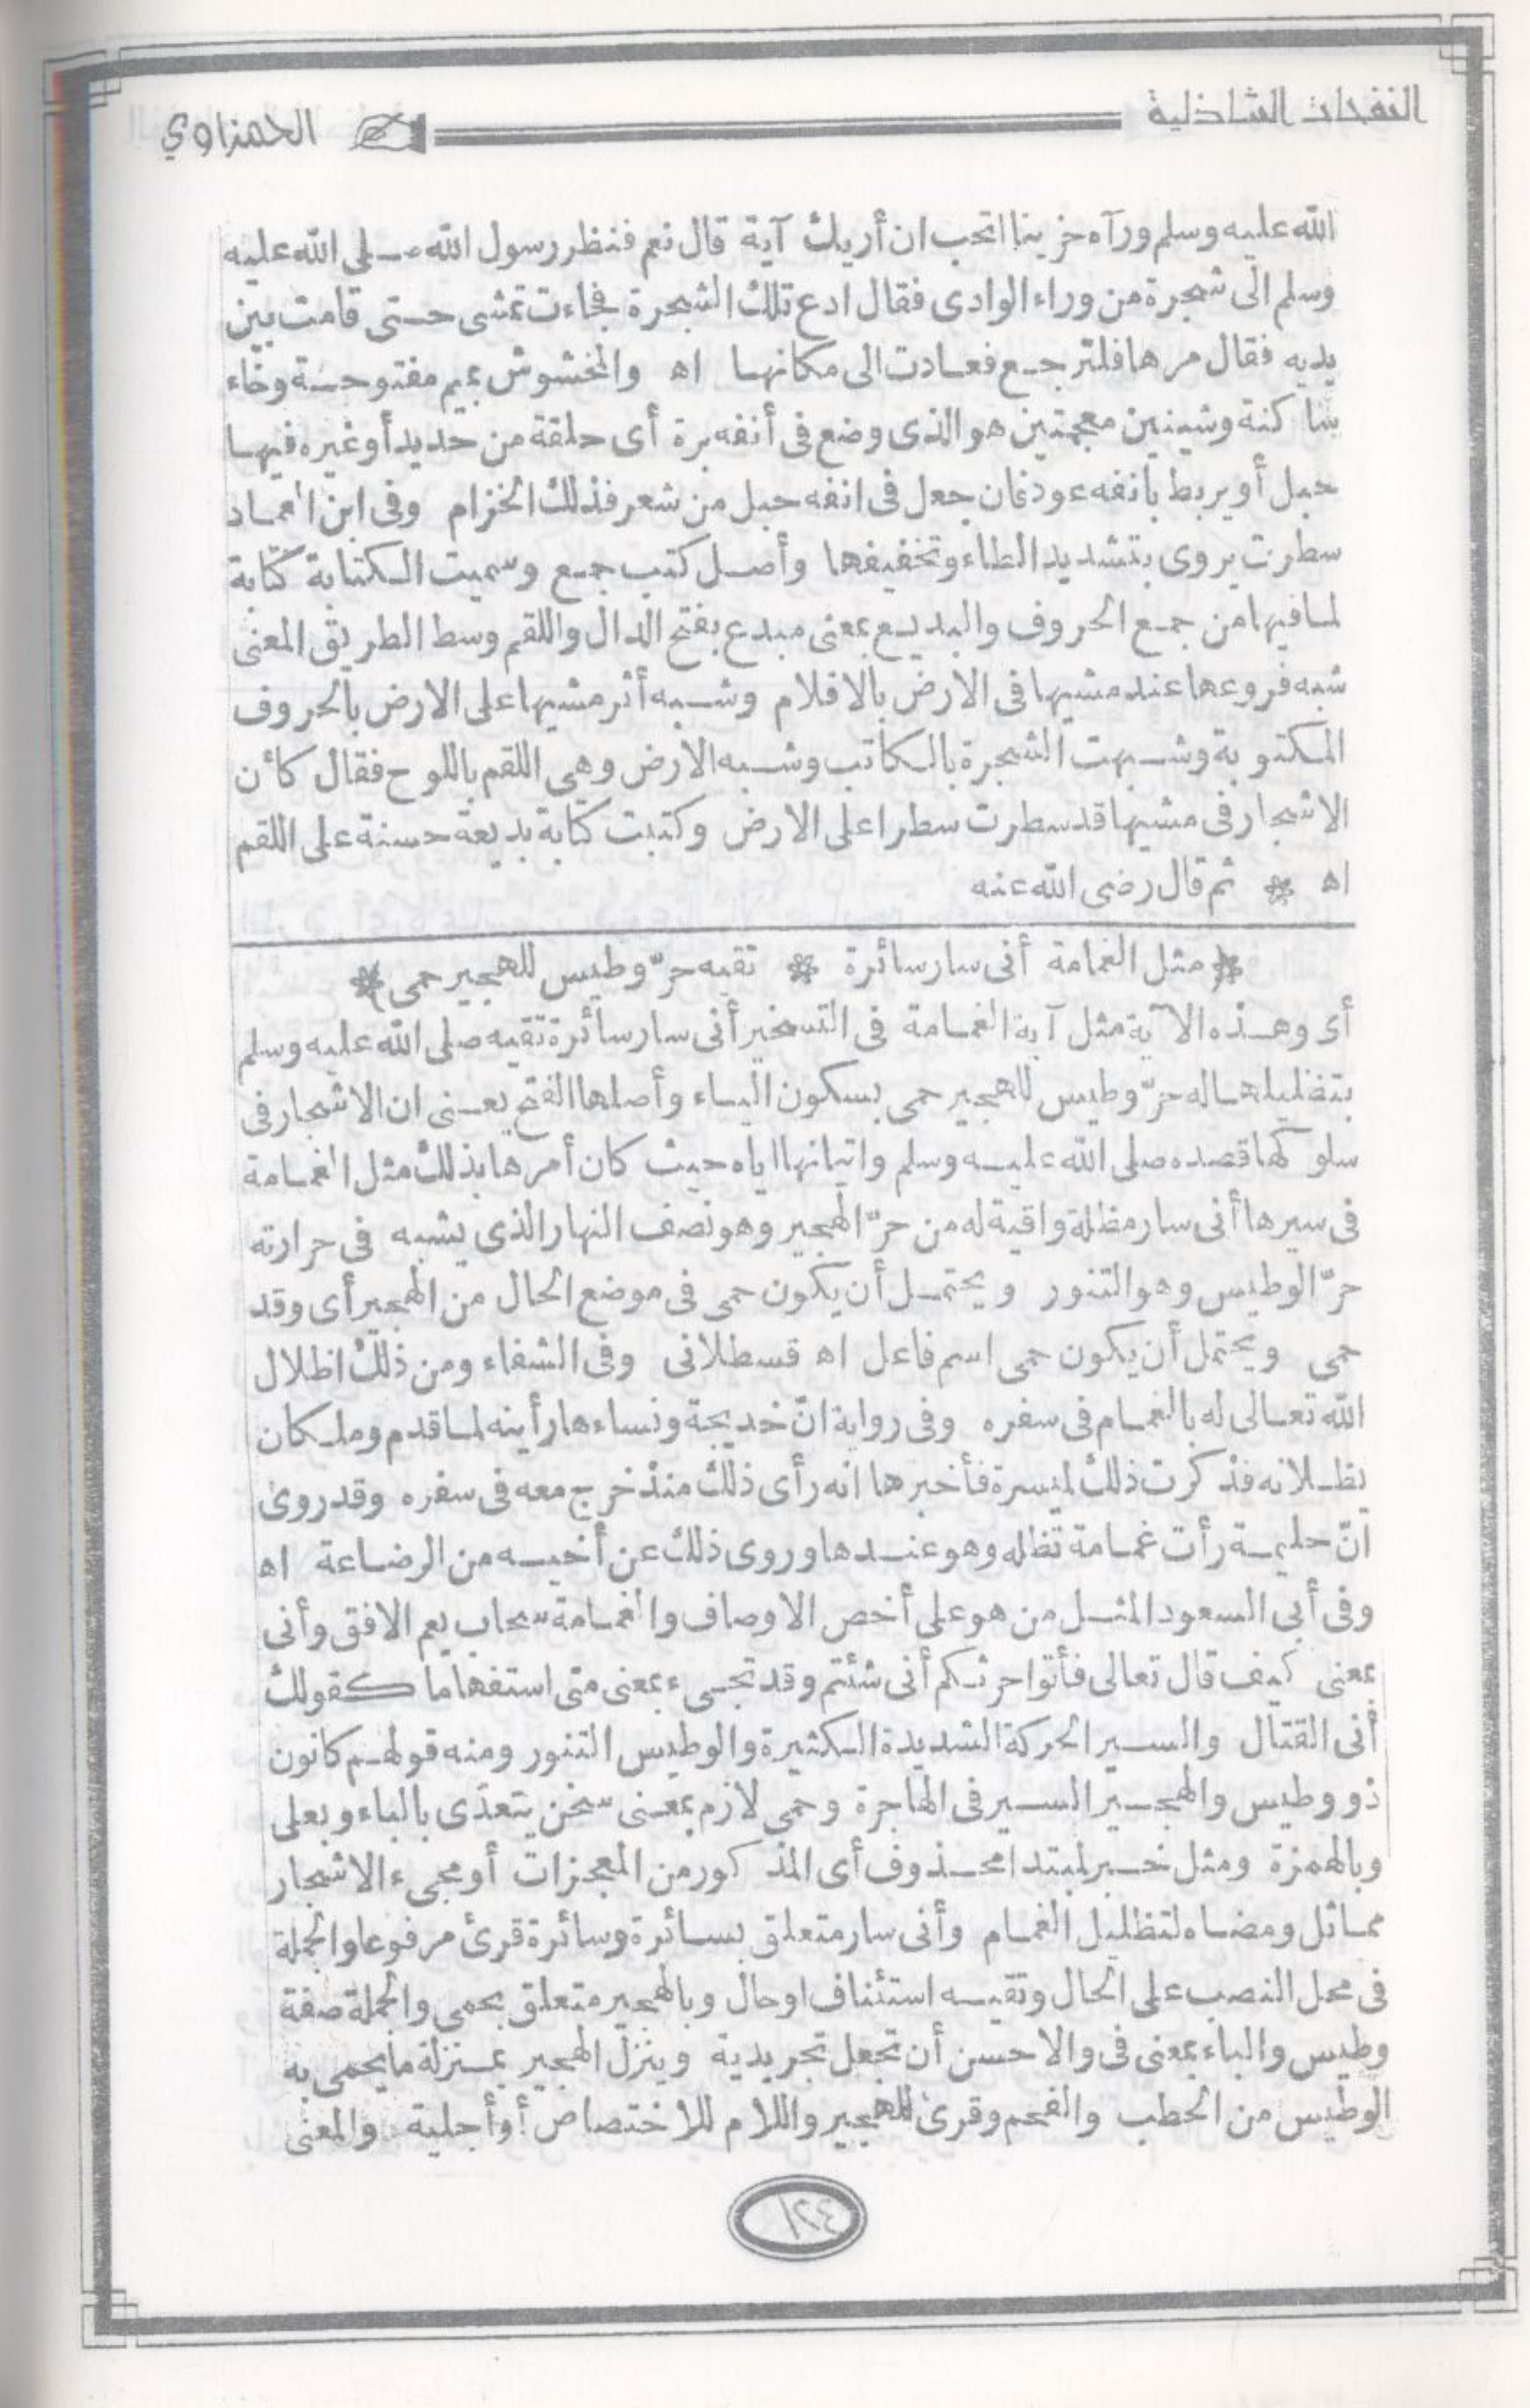 النفحات الشاذلية
الحمزاوي
الله عليه وسلم ورآه حزينا اتحب ان أريك آية قال نعم فنظر رسول الله صلى الله عليه
وسلم الى شجرة من وراء الوادى فقال ادع تلك الشجرة فجاءت تمشى حتى قامت بين
يديه فقال مرها فلترجع فعادت الى مكانها اه والمخشوش بميم مفتوحة وخاء
ساكنة وشينين معجمتين هو الذى وضع فى أنفه برة أى حلقة من حديد أو غيره فيها
حبل أو يربط بانفه عود فان جعل فى انفه حبل من شعر فذلك الخزام وفى ابن العماد
سطرت يروى بتشديد الطاء وتخفيفها وأصل كتب جمع وسميت الكتابة كتابة
لما فيها من جمع الحروف والبديع بمعنى مبدع بفتح الدال واللقم وسط الطريق المعنى
شبه فروعها عند مشيها فى الارض بالاقلام وشبه أثر مشيها على الارض بالحروف
المكتوبة وشبهت الشجرة بالكاتب وشبه الارض وهى اللقم باللوح فقال كأن
الاشجار فى مشيها قد سطرت سطرا على الارض وكتبت كتابة بديعة حسنة على اللقم
اه * ثم قال رضى الله عنه
﴿مثل الغمامة أنى سار سائرة * تقيه حرّ وطيس للهجير حمى﴾
أى وهذه الآية مثل آية الغمامة فى التسخير أنى سار سائرة تقيه صلى الله عليه وسلم
بتظليلها له حرّ وطيس للهجير حمى بسكون الياء وأصلها الفتح يعنى ان الاشجار فى
سلوكها قصده صلى الله عليه وسلم واتيانها اياه حيث كان أمرها بذلك مثل الغمامة
فى سيرها أنى سار مظلة واقية له من حرّ الهجير وهو نصف النهار الذى يشبه فى حرارته
حرّ الوطيس وهو التنور ويحتمل أن يكون حمى فى موضع الحال من الهجير أى وقد
حمى ويحتمل أن يكون حمى اسم فاعل اه قسطلانى وفى الشفاء ومن ذلك اظلال
الله تعالى له بالغمام فى سفره وفى رواية انّ خديجة ونساءها رأينه لما قدم وملكان
يظلانه فذكرت ذلك لميسرة فأخبرها انه رأى ذلك منذ خرج معه فى سفره وقد روى
انّ حليمة رأت غمامة تظله وهو عندها وروى ذلك عن أخيه من الرضاعة اه
وفى أبى السعود المثل من هو على أخص الاوصاف والغمامة سحاب يعم الافق وأنى
بمعنى كيف قال تعالى فأتوا حرثكم أنى شئتم وقد تجىء بمعنى متى استفهاما كقولك
أنى القتال والسير الحركة الشديدة الكثيرة والوطيس التنور ومنه قولهم كانون
ذو وطيس والهجير السير فى الهاجرة وحمى لازم بمعنى سخن يتعدّى بالباء وبعلى
وبالهمزة ومثل خبر لمبتدا محذوف أى المذكور من المعجزات أو مجىء الاشجار
مماثل ومضاه لتظليل الغمام وأنى سار متعلق بسائرة وسائرة قرئ مرفوعا والجملة
فى محل النصب على الحال وتقيه استئناف او حال وبالهجير متعلق بحمى والجملة صفة
وطيس والباء بمعنى فى والاحسن أن تجعل تجريدية وينزل الهجير بمنزلة ما يحمى به
الوطيس من الحطب والفحم وقرئ للهجير واللام للاختصاص أو أجلية والمعنى
١٢٤